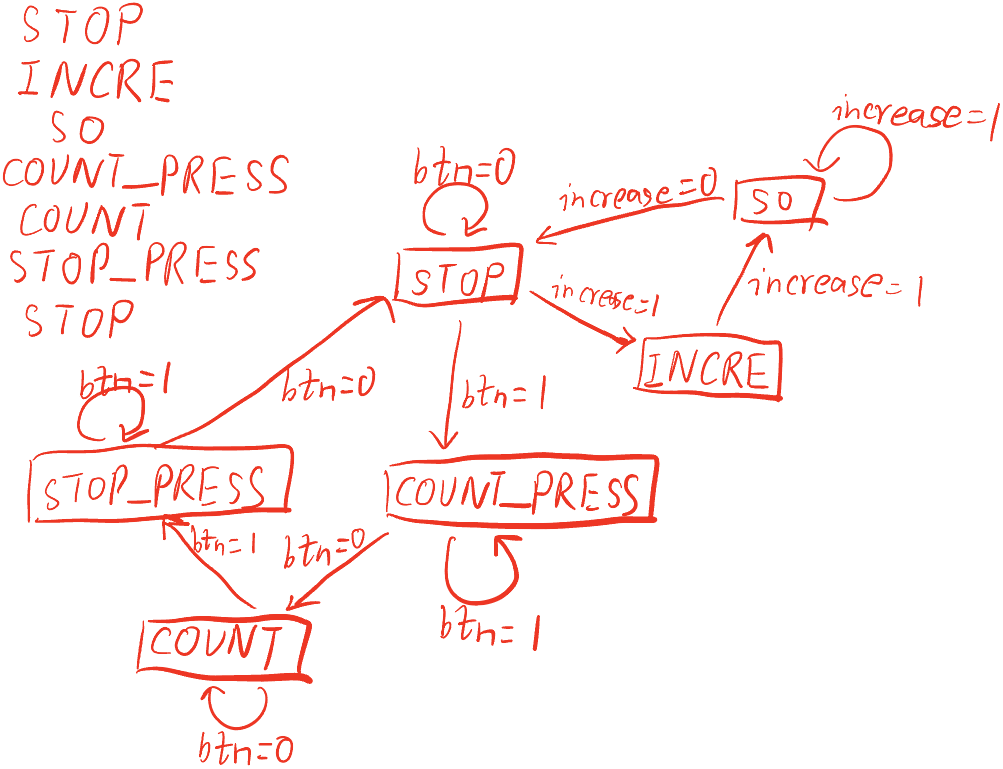 STOP
INCRE
SO
COUNT_PRESS
COUNT
STOP_PRESS
STOP
increase=1
btn=0
increase=0
SO
STOP
increase=1
increase=1
INCRE
btn=1
btn=0
btn=1
STOP_PRESS
COUNT_PRESS
btn=1
btn=0
btn=1
COUNT
btn=0